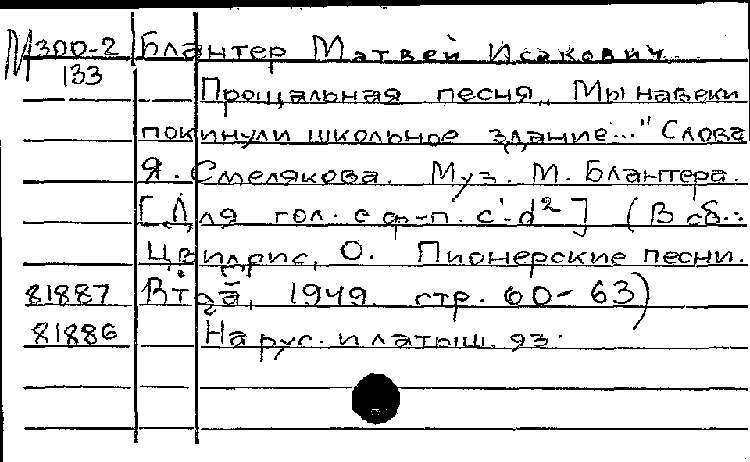 М 300-2 Блантер Матвей Исакович
133
Прощальная песня „Мы навеки
покинули школьное здание..." Слова
Я. Смелякова. Муз. М. Блантера.
[Для гол. с ф-п. c'-d²] (В сб.:
Цвидрис, О. Пионерские песни.
81887 1949. стр. 60-63)
81886 На рус. и латыш. яз.